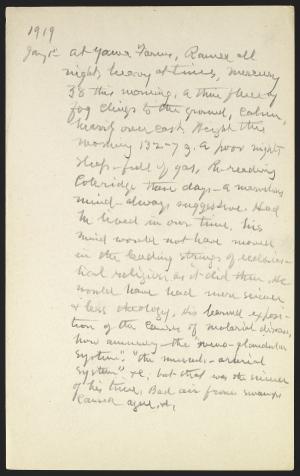 1919
Jany 1st At Yama Farms, Rained all
night, heavy at times, mercury
38 this morning. A thin fleecy
fog clings to the ground, calm,
heavily over cast. Weight this
morning 132-7 3. A poor night
sleep - full of gas. Re-reading
Coleridge these days - a marvelous
mind - always suggestive. Had
he lived in our time, his
mind would not have moved
in the leading strings of ecclesias-
tical religion as it did then. He
would have had more science
& less theology. His learned exposi-
tion of the causes of malarial disease,
how amusing - the "veno-glandular
system". "the musculo-arterial
system" &c, but that was the science
of his time. Bad air from swamps
caused ague, &c,